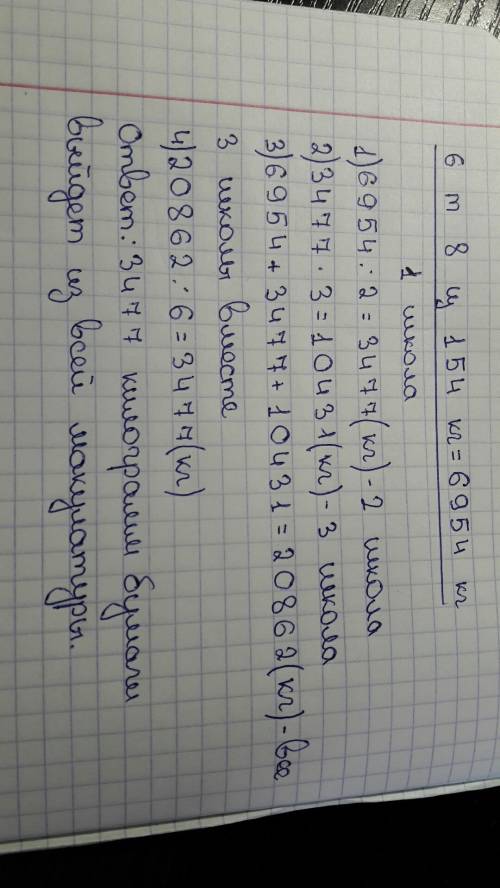 6 т 8 ц 154 кг = 6954 кг
1 школа
1) 6954 : 2 = 3477 (кг) - 2 школа
2) 3477 · 3 = 10431 (кг) - 3 школа
3) 6954 + 3477 + 10431 = 20862 (кг) - все
3 школы вместе
4) 20862 : 6 = 3477 (кг)
Ответ: 3477 килограмм бумаги
выйдет из всей макулатуры.